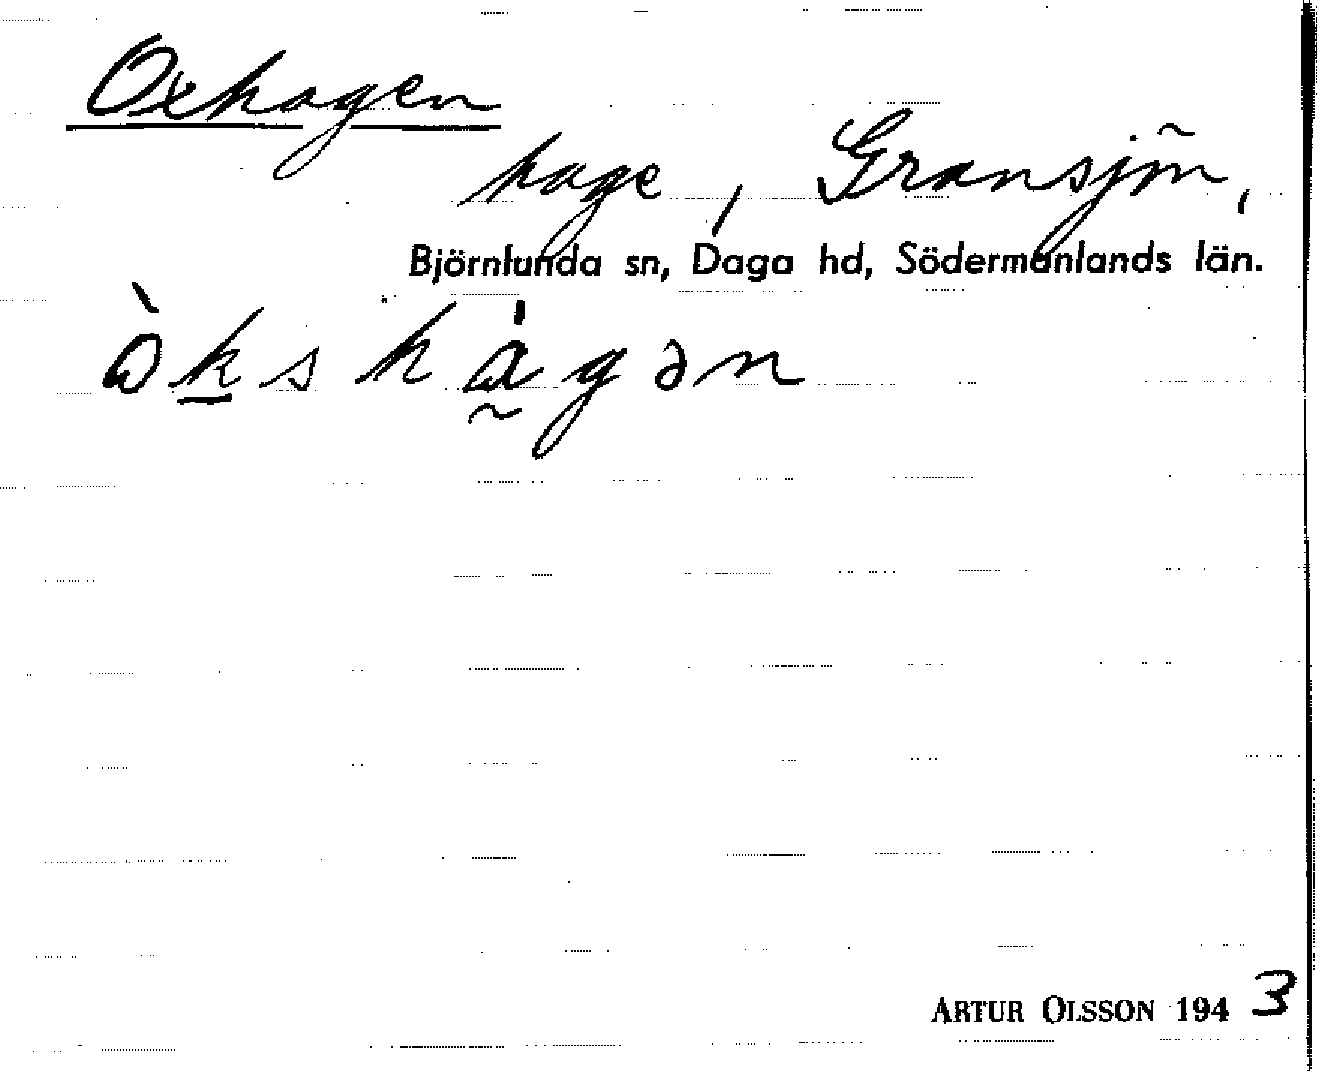 Oxhagen
hage, Gransjön,
Björnlunda sn, Daga hd, Södermanlands län.
òkshágən
ARTUR OLSSON 1943